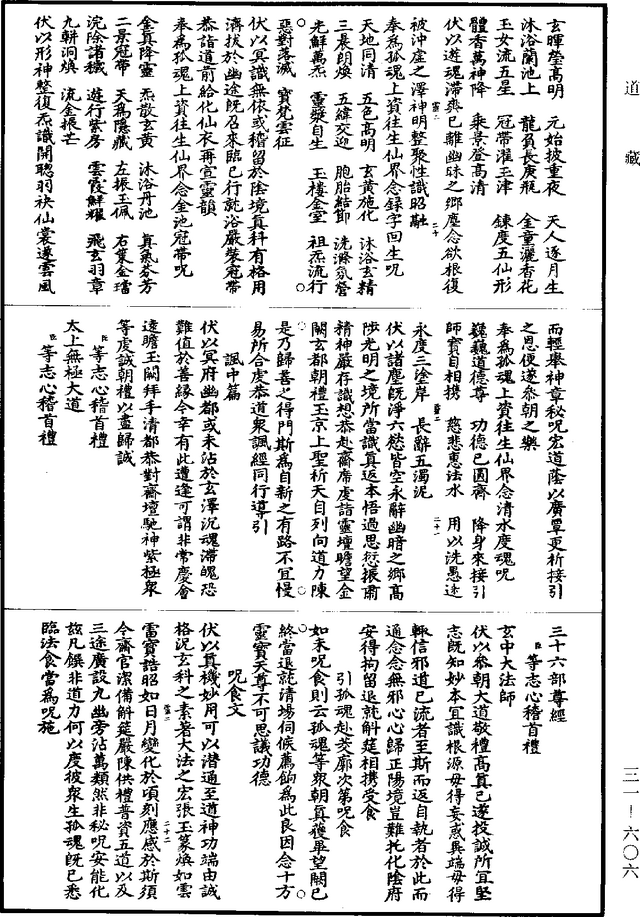 道藏
三一—六〇六
玄暉瑩高明　元始披重夜　天人逐月生
沐浴蘭池上　龍負長庚瓶　金童灑香花
玉女流五星　冠帶濯玉津　鍊度五仙形
體香萬神降　乘景登高清
伏以遊魂滯爽已離幽昧之鄉塵念欲根復
被沖虛之澤神明整聚性識昭融
奉為孤魂上資往生仙界念錄字回生呪
天地同清　五色高明　玄黃施化　沐浴玄精
三晨朗煥　五緯交迎　胞胎結節　洗滌氛營
光鮮萬炁　靈發自生　玉樓金室　祖炁流行
惡對落滅　寶梵雲征
伏以冥識無依或稽留於陰境真科有格用
濟拔於幽途既召來臨已行就浴嚴裝冠帶
恭詣道前給化仙衣再宣靈韻
奉為孤魂上資往生仙界念金池冠帶呪
金真降靈　炁散玄黃　沐浴丹池　真氣芬芳
二景冠帶　天為隱藏　左振玉佩　右葉金璫
浣除諸穢　遊行紫房　雲霞鮮耀　飛玄羽章
九輧洞煥　流金振芒
伏以形神整復炁識開聰羽袂仙裳遂雲風
而輕舉神章秘呪宏道蔭以廣覃更祈接引
之恩便遂參朝之樂
奉為孤魂上資往生仙界念清水度魂呪
巍巍道德尊　功德已圓齋　降身來接引
師寶自相攜　慈悲惠法水　用以洗愚迷
永度三塗岸　長辭五濁泥
伏以諸塵既淨六慾皆空永辭幽暗之鄉高
陟光明之境所當識真返本悟過思愆振肅
精神嚴存識想恭赴齋席虔詣靈壇瞻望金
闕玄都朝禮玉京上聖祈天自列向道力陳
是乃歸善之得門斯為自新之有路不宜慢
易所合虔恭道衆諷經同行導引
諷中篇
伏以冥府幽都或未沾於玄澤沉魂滯魄恐
難值於善緣今幸有此遭逢可謂非常慶會
遠瞻玉闕拜手清都恭對齋壇馳神紫極衆
等虔誠朝禮以盡歸誠
臣等志心稽首禮
太上無極大道
臣等志心稽首禮
三十六部尊經
臣等志心稽首禮
玄中大法師
伏以參朝大道敬禮高真已遂投誠所宜堅
志既知妙本宜識根源毋得妄惑異端毋得
輒信邪道已流者至斯而返自執者於此而
通念念無邪心心歸正陽境豈難托化陰府
安得拘留退就斛筵相攜受食
引孤魂赴茭廓次第呪食
如來呪食則云孤魂等衆朝真獲畢望闕已
終當退就清場伺候薦餉為此良因念十方
靈寶天尊不可思議功德
呪食文
伏以真機妙用可以潛通至道神功端由誠
格況玄科之素著大法之宏張玉篆煥如雲
雷寶誥昭如日月變化於頃刻應感於斯須
今齋官潔備斛筵嚴陳供禮普資五道以及
三途廣設九幽旁沾萬類然非秘呪安能化
玆凡饌非道力何以度彼衆生孤魂既已悉
臨法食當為呪施